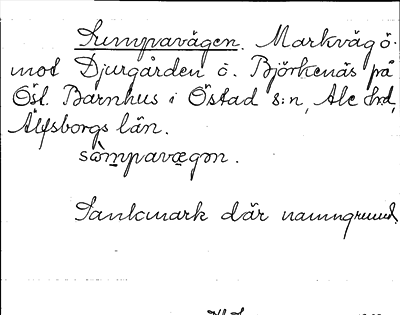 Sumpavägen. Markväg ö.
mot Djurgården ö. Björkenäs på
Östl. Barnhus i Östad s:n, Ale hrd,
Älfsborgs län.
sòmpavægən.
Sankmark där namngrund.